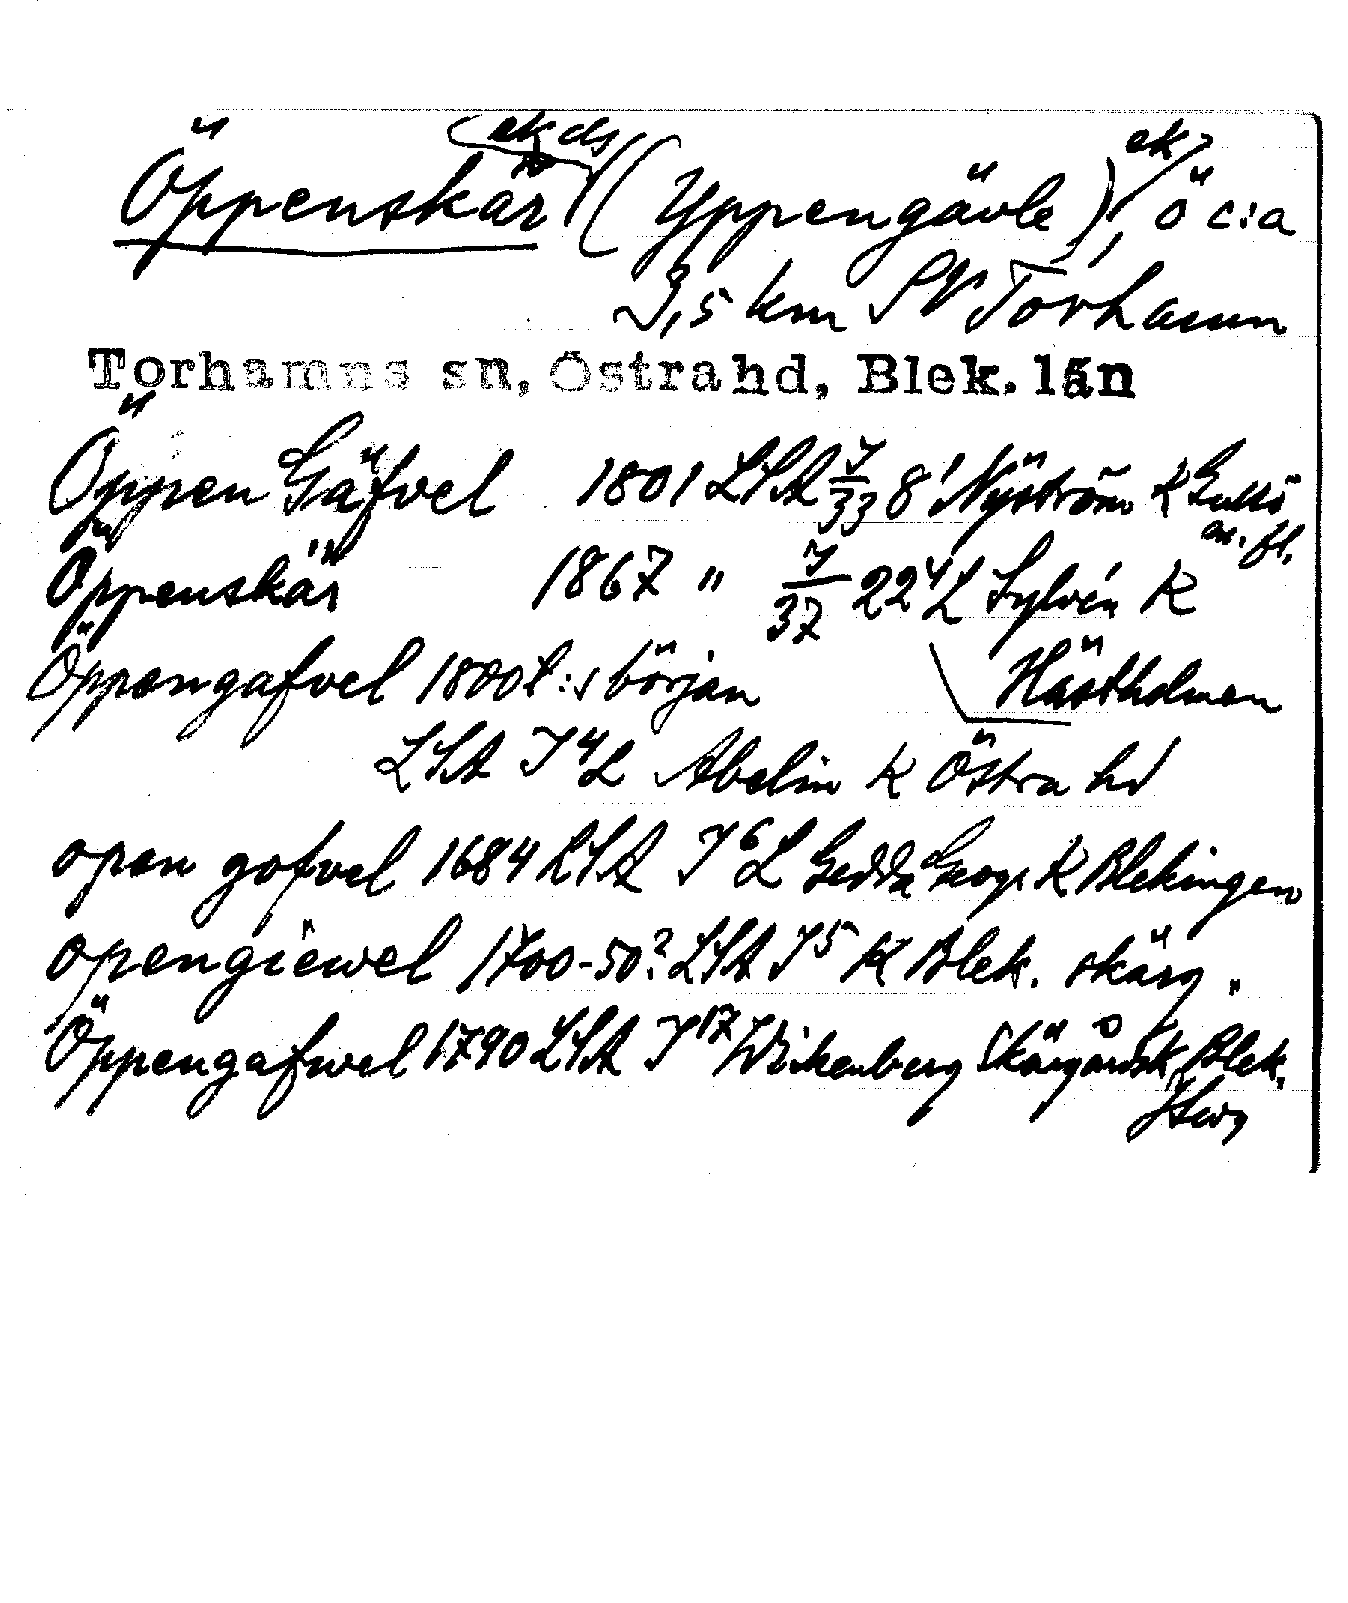 Öppenskär ek ds (Yppengävle) ek, ö c:a
3,5 km SV Torhamn
Torhamns sn, Östra hd, Blek. län
Öppen Gäfvel 1801 LSA 7/33 8¹ Nyström K
m. fl.
Öppenskär 1867 " 7/37 22⁴L Sylvén K
Hästholmen
Öppengafvel 1800t:s början
LSA I⁴L Abelin K Östra hd
open gofvel 1684 LSA I⁶L Gedda Geogr K Blekingen
opengiewel 1700-50? LSA I⁵ K Blek. skärg.
Öppengafwel 1790 LSA I¹⁷ Wikenberg Skärgårdsk Blek.